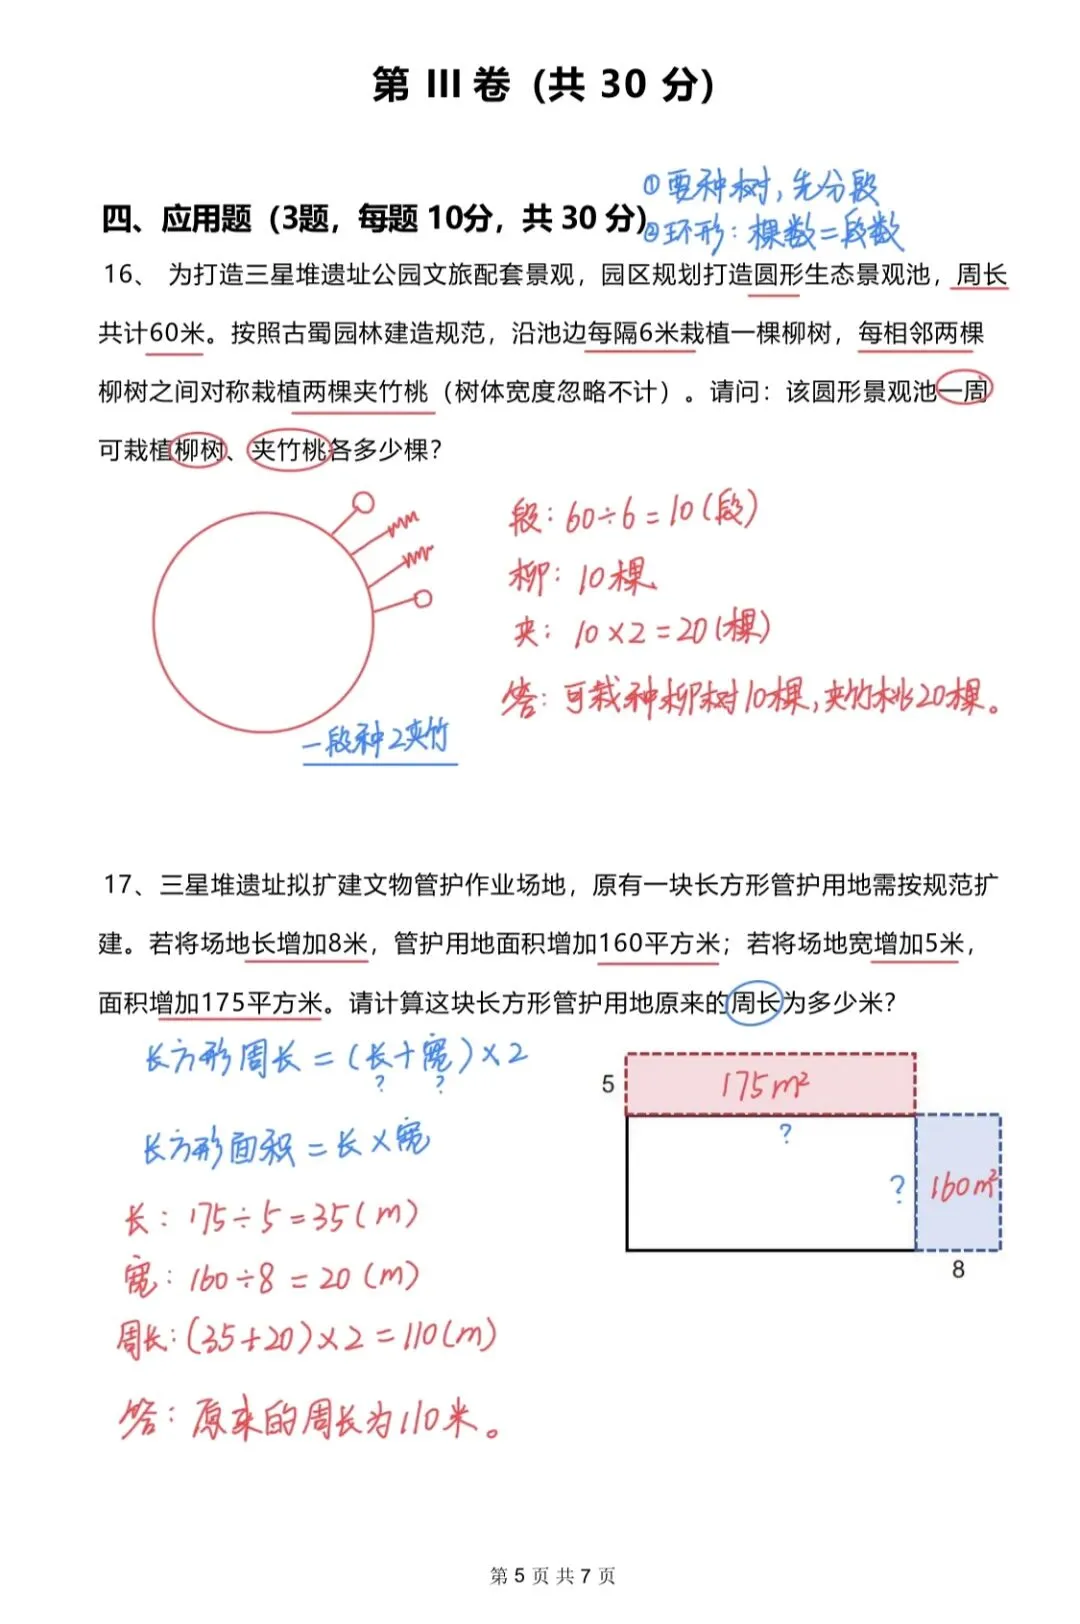 第 III 卷 (共 30 分)
①要种树，先分段
四、应用题（3题，每题 10分，共 30 分）
②环形：棵数=段数
16、 为打造三星堆遗址公园文旅配套景观，园区规划打造圆形生态景观池，周长
共计60米。按照古蜀园林建造规范，沿池边每隔6米栽植一棵柳树，每相邻两棵
柳树之间对称栽植两棵夹竹桃（树体宽度忽略不计）。请问：该圆形景观池一周
可栽植柳树、夹竹桃各多少棵？
段：60÷6=10(段)
柳：10棵
夹：10×2=20(棵)
答：可栽种柳树10棵，夹竹桃20棵。
一段种2夹竹
17、三星堆遗址拟扩建文物管护作业场地，原有一块长方形管护用地需按规范扩
建。若将场地长增加8米，管护用地面积增加160平方米；若将场地宽增加5米，
面积增加175平方米。请计算这块长方形管护用地原来的周长为多少米？
长方形周长=(长+宽)×2
? ?
长方形面积=长×宽
长：175÷5=35(m)
宽：160÷8=20(m)
周长：(35+20)×2=110(m)
答：原来的周长为110米。
5
175m²
?
?
160m²
8
第 5 页 共 7 页